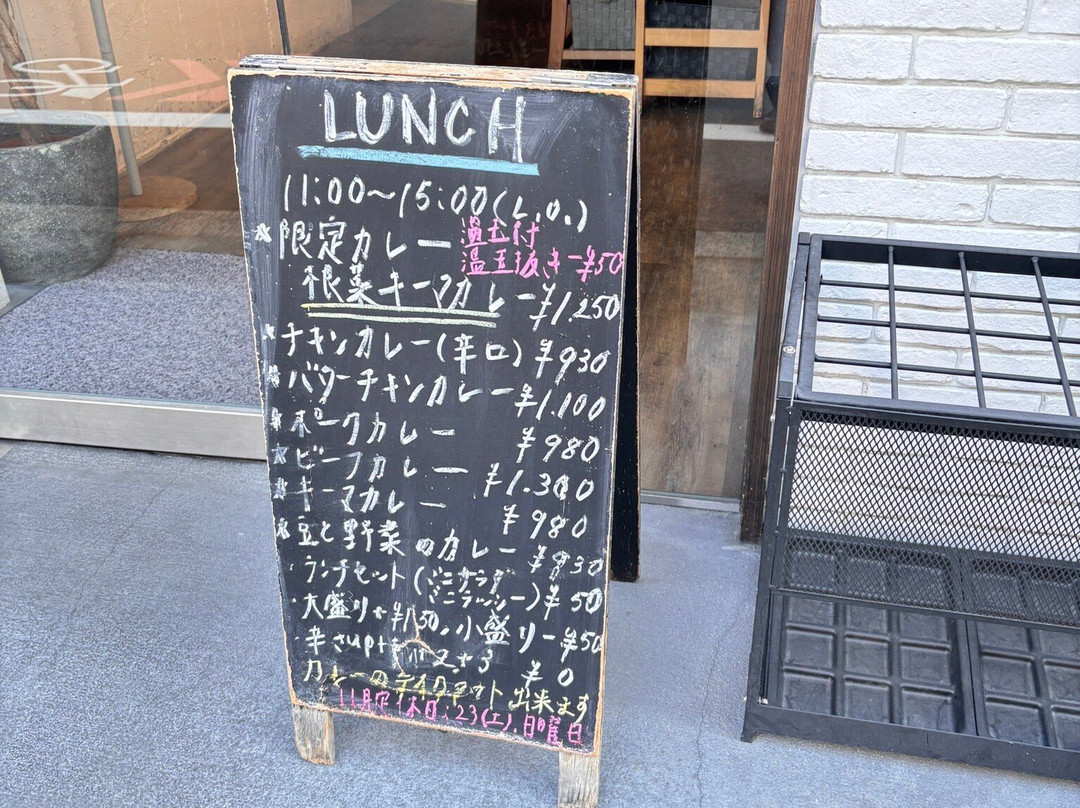 LUNCH
11:00～15:00(L.O.)
★限定カレー 温玉付
温玉抜き-¥50
根菜キーマカレー ¥1.250
★チキンカレー(辛口) ¥930
★バターチキンカレー ¥1.100
★ポークカレー ¥980
★ビーフカレー ¥1.300
★キーマカレー ¥980
★豆と野菜のカレー ¥930
・ランチセット(ミニサラダ
ミニラッシー) ¥50
・大盛り+¥150。小盛り-¥50
・辛さup+ 2.+3 ¥0
カレーのテイクアウト出来ます
11月定休日:23(土).日曜日